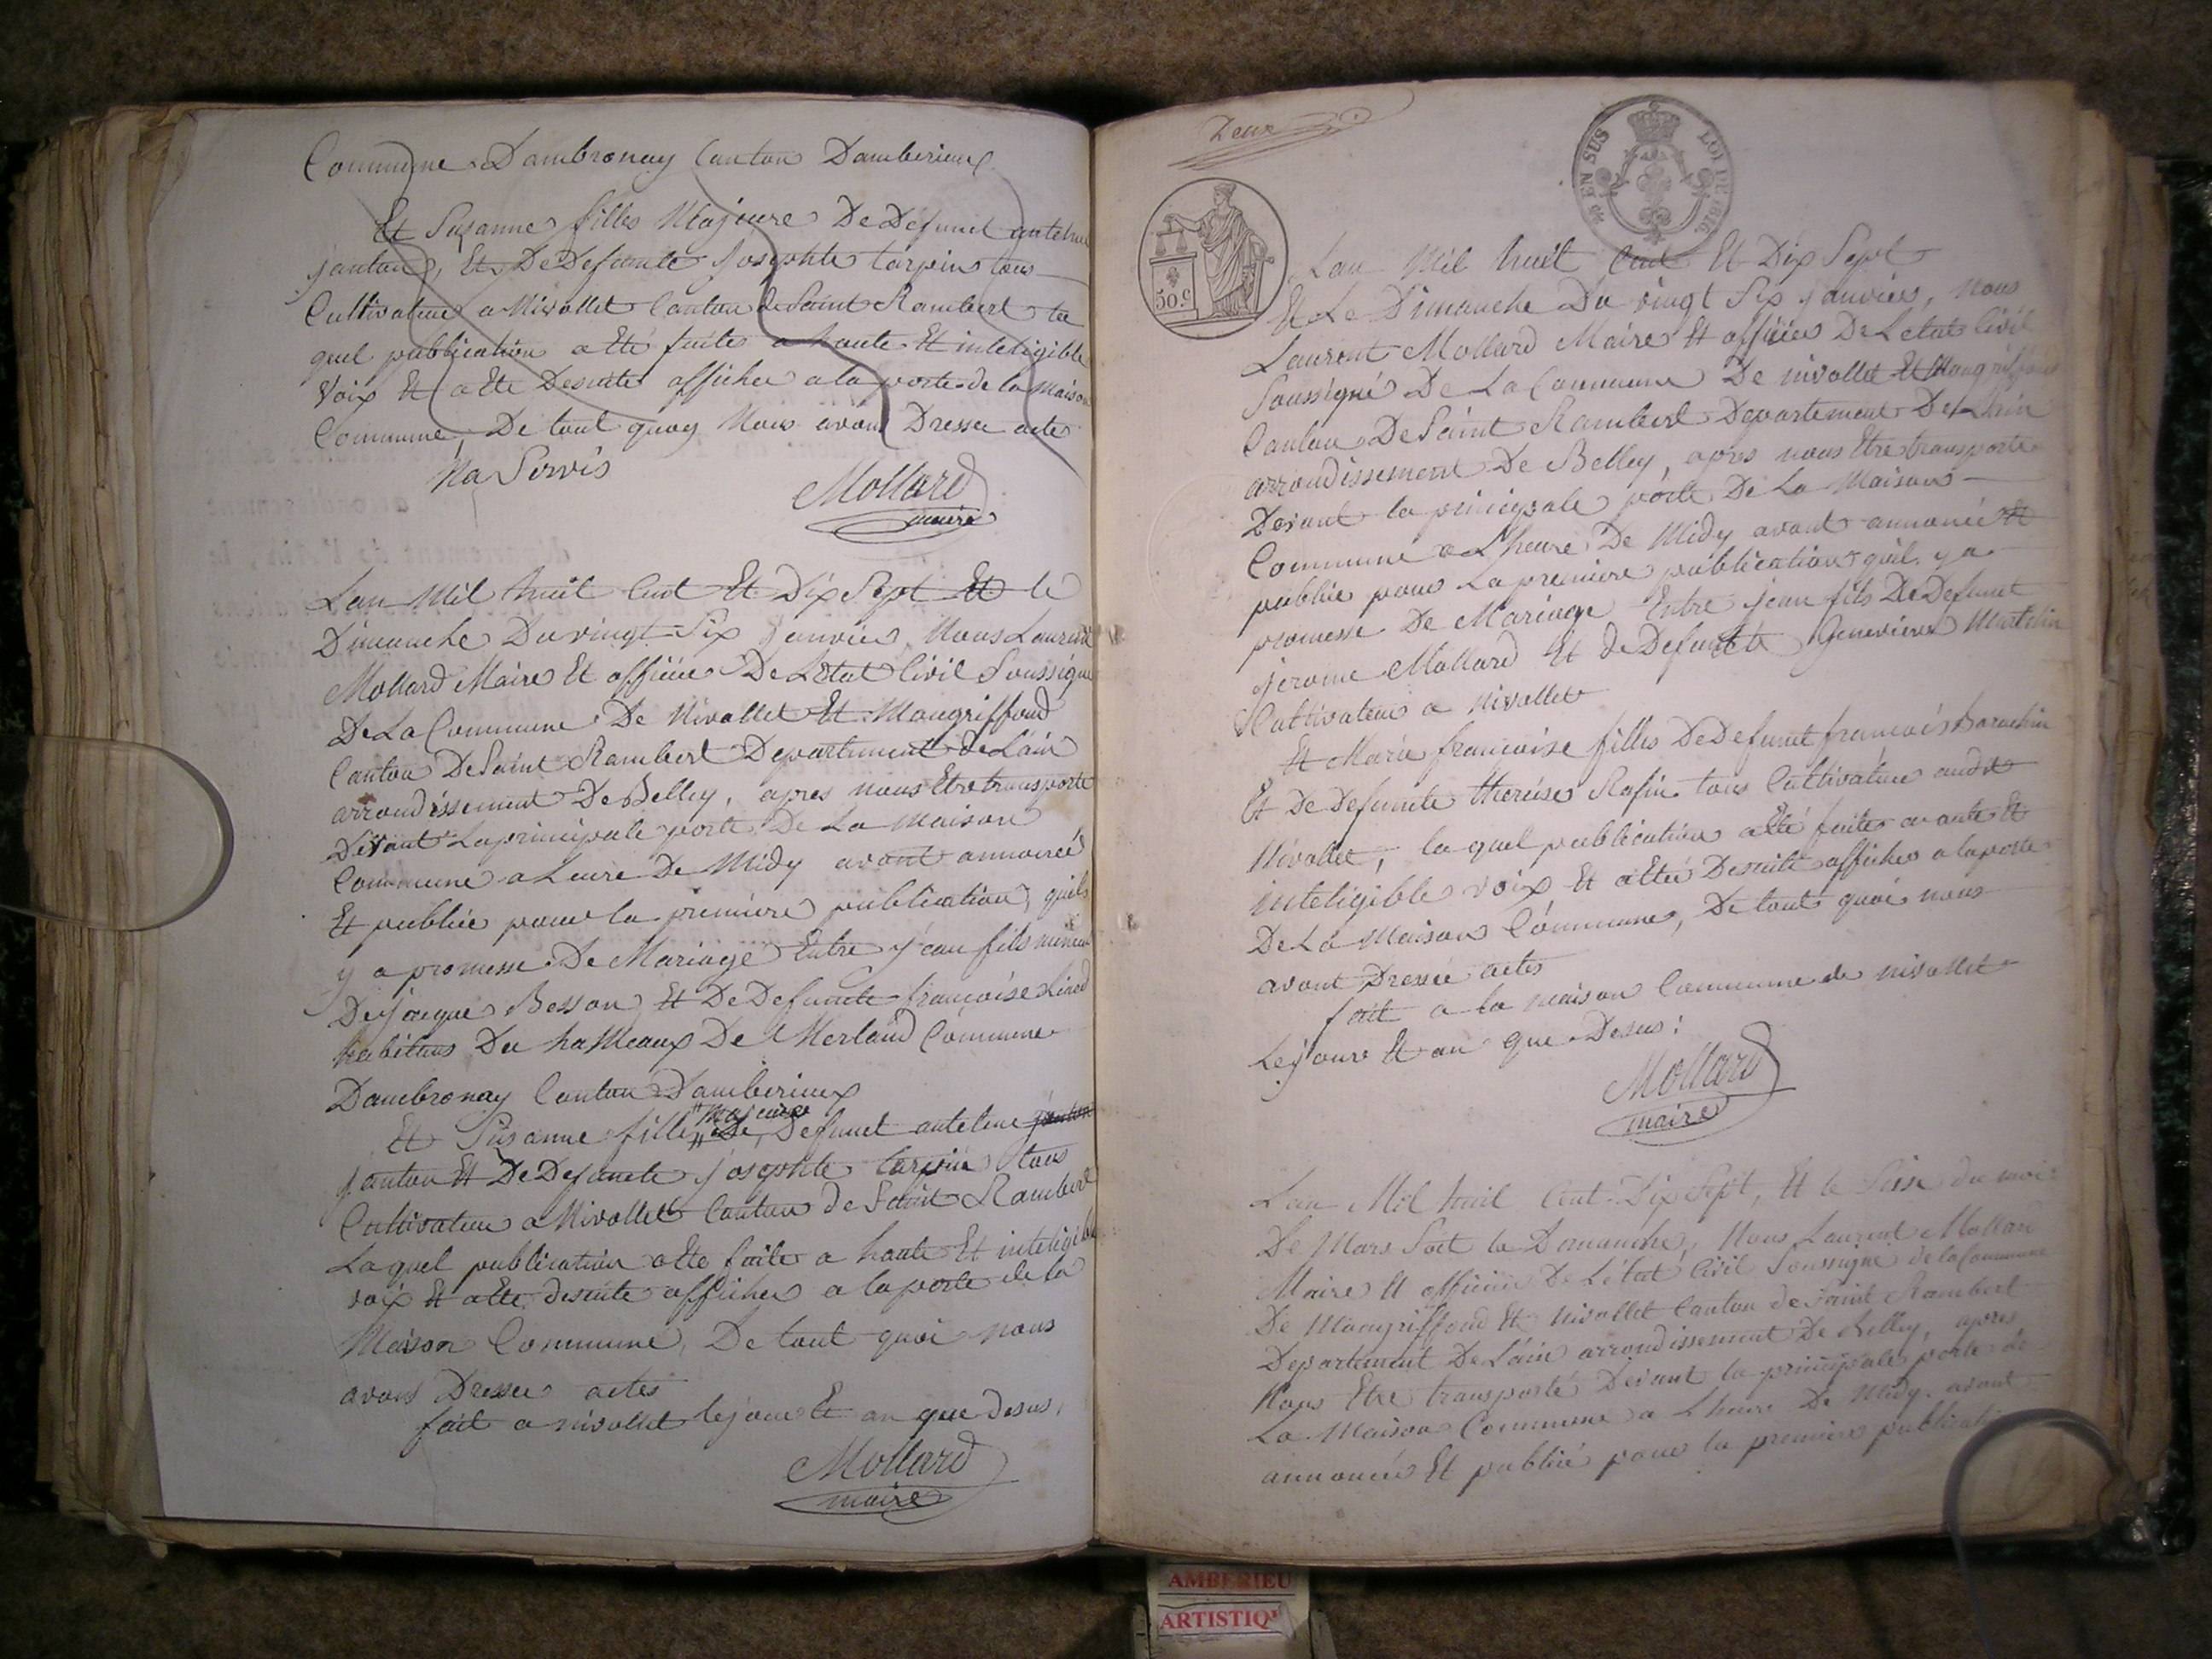 Commune Dambronay Canton Damberieux
Et Susanne filles Majeure De Defunct antelme
janton, Et De Defuncte Josephte tarpin tous
Cultivateur a Nivollet Canton de Saint Rambert la
quel publication a Eté faites a haute Et inteligible
Voix Et a Ete Desuite afficher a la porte de la Maison
Commune, De tout quoy Nous avons Dresser acte
Na Servis
Mollard
maire
Lan Mil huit Cent Et Dix Sept Et le
Dimanche Du vingt Six Janvier, Nous Laurent
Mollard Maire Et officier De Létat Civil Soussigné
De La Commune De Nivollet Et Mongriffond
Canton De Saint Rambert Departement de Lain
arrondissement De Belley, apres nous Etre transporté
Devant La principale porte De La Maison
Commune a Leure De Midy avont annoncé
Et publié pour la premiere publication, quils
y a promesse De Mariage Entre jean fils mineur
De jacque Besson, Et De Defuncte françoise
habitans Du haMeaux De Merland Commune
Dambronay Canton Damberieux
majeure
Et Susanne fille de Defunct antelme janton
janton Et De Defuncte josephte tarpin tous
Cultivateur a Nivollet Canton de Saint Rambert
Laquel publication a Ete faite a haute Et inteligible
voix Et a Ete desuite afficher a la porte de la
Maison Commune, De tout quoi nous
avons Dresser actes
fait a nivollet le jour Et an que desus,
Mollard
maire
Deux
EN SUS
LOI DE 1816
50.c
Lan Mil huit Cent Et Dix Sept
Et Le Dimanche Du vingt Six Janvier, Nous
Laurent Mollard Maire Et officier De Letat Civil
Soussigné De La Commune De nivollet Et Mongriffond
Canton De Saint Rambert Departement De Lain
arrondissement De Belley, apres nous Etre transporte
Devant la principale porte De La Maison
Commune a Lheure De Midy avont annoncé Et
publié pour La premiere publication quil y a
promesse De Mariage Entre jean fils De Defunct
jerome Mollard Et de Defuncte Genevieve Martelin
Cultivateur a Nivollet
Et Marie françoise filles De Defunct françois
Et De Defuncte therèise Rafin tous Cultivateur audit
Nivollet, la quel publication a Eté faite a aute Et
inteligible voix Et a Eté Desuite afficher a la porte
De La Maison Commune, De tout quoi nous
avont Dressée actes
fait a la maison Commune de nivollet
Le jour Et an que Desus:
Mollard
maire
Lan Mil huit Cent Dix Sept, Et le Seise du mois
De Mars Soit le Dimanche, Nous Laurent Mollard
Maire Et officier De Létat Civil Soussigné de la Commune
De Mongriffond Et Nivollet Canton de Saint Rambert
Departement De Lain arrondissement De Belley, apres
Nous Etre transporté Devant la principale porte de
La Maison Commune a Lheure De Midy avont
annoncé Et publié pour la premiere publicati
AMBERIEU
ARTISTIQU